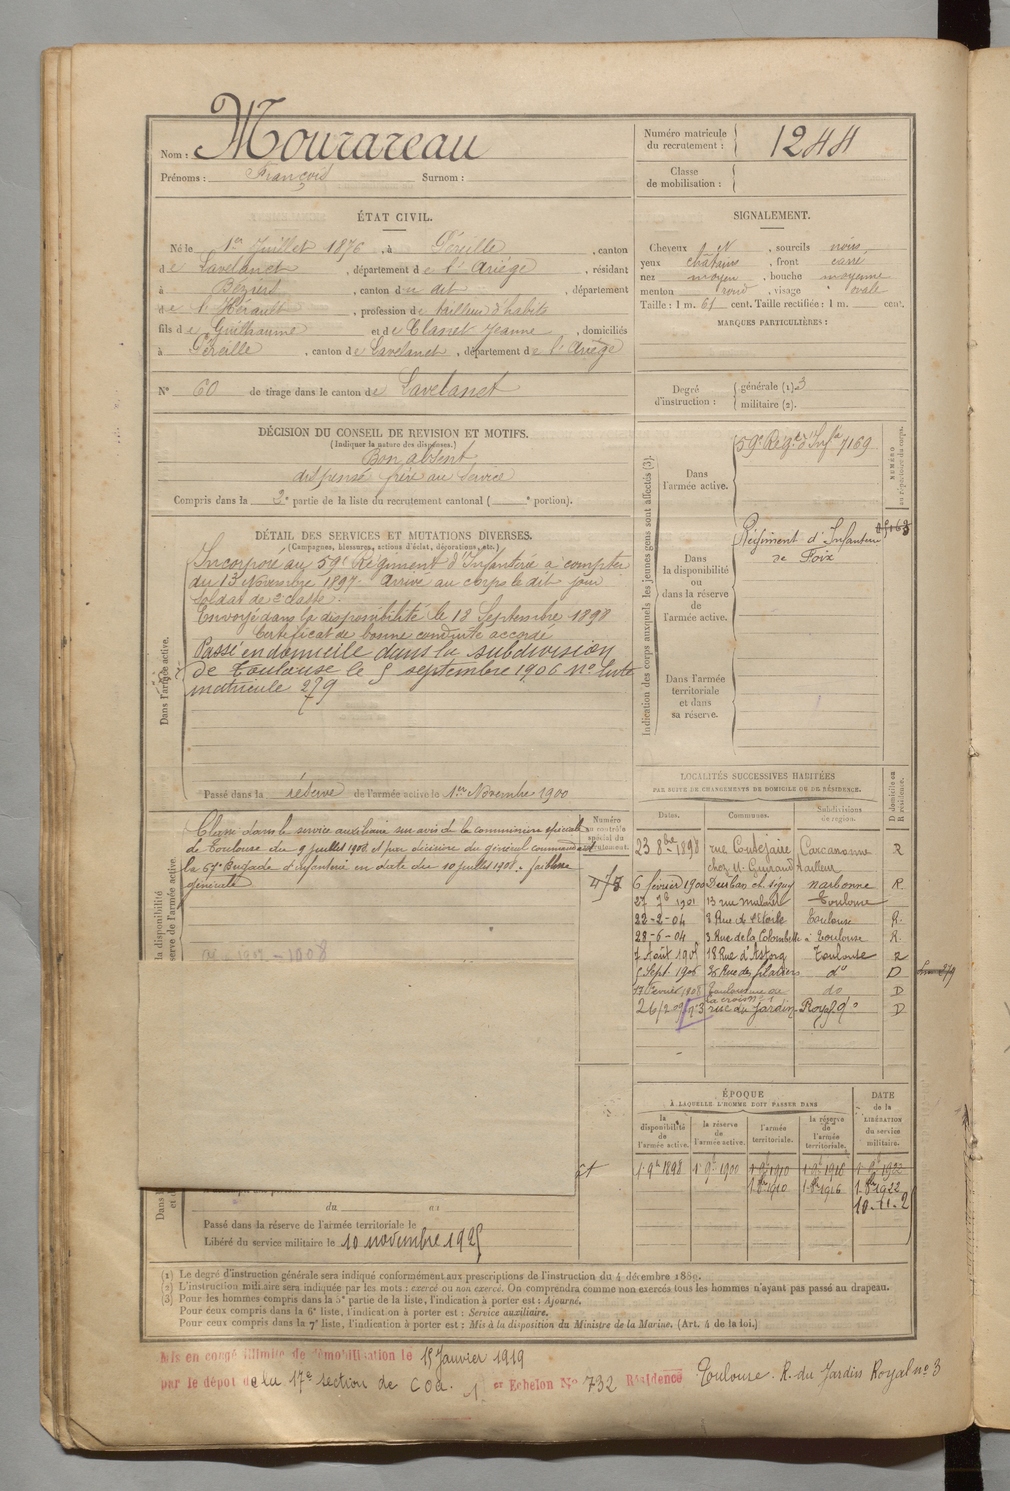 Nom : Mourareau
Prénoms : François Surnom :
Numéro matricule du recrutement : 1244
Classe de mobilisation :
ÉTAT CIVIL.
Né le 1er Juillet 1876, à Péreille, canton
de Lavelanet, département de l'Ariège, résidant
à Béziers, canton du dit, département
de l'Hérault, profession de tailleur d'habits
fils de Guilhaume et de Clanet Jeanne, domiciliés
à Péreille, canton de Lavelanet, département de l'Ariège
N° 60 de tirage dans le canton de Lavelanet
SIGNALEMENT.
Cheveux N, sourcils noirs
yeux châtains, front carré
nez moyen, bouche moyenne
menton rond, visage ovale
Taille : 1 m. 61 cent. Taille rectifiée : 1 m. cent.
MARQUES PARTICULIÈRES :
Degré d'instruction :
générale (1). 3
militaire (2).
DÉCISION DU CONSEIL DE REVISION ET MOTIFS.
(Indiquer la nature des dispenses.)
Bon absent
dispensé frère au service
Compris dans la 2e partie de la liste du recrutement cantonal ( e portion).
DÉTAIL DES SERVICES ET MUTATIONS DIVERSES.
(Campagnes, blessures, actions d'éclat, décorations, etc.)
Dans l'armée active.
Incorporé au 59e Régiment d'Infanterie à compter
du 13 Novembre 1897. Arrivé au corps le dit jour
soldat de 2e classe.
Envoyé dans la disponibilité le 18 Septembre 1898
Certificat de bonne conduite accordé
Passé en domicile dans la subdivision
de Toulouse le 5 septembre 1906 no liste
matricule 279
Passé dans la réserve de l'armée active le 1er Novembre 1900
Indication des corps auxquels les jeunes gens sont affectés (3).
NUMÉRO au répertoire du corps.
Dans l'armée active.
59e Régt d'Infie 7169
Dans la disponibilité ou dans la réserve de l'armée active.
Régiment d'Infanterie
de Foix
Dans l'armée territoriale et dans sa réserve.
Numéro au contrôle spécial du recrutement.
Classé dans le service auxiliaire sur avis de la commission spéciale
de Toulouse du 9 juillet 1908 et par décision du général commandant
la 67e Brigade d'Infanterie en date du 10 juillet 1908. faiblesse
générale
LOCALITÉS SUCCESSIVES HABITÉES
PAR SUITE DE CHANGEMENTS DE DOMICILE OU DE RÉSIDENCE.
Dates. Communes. Subdivisions de région. D domicile ou R résidence.
23 8bre 1898 rue Coutejaire Carcassonne R
chez M. Guiraud tailleur
6 février 1900 Durban ch. Narbonne R.
27 7b 1901 13 rue Toulouse
22-2-04 8 Rue de l'Etoile Toulouse R.
28-6-04 3 Rue de la Colombette à Toulouse R.
7 Août 1905 18 Rue d'Astorg Toulouse R
5 Sept. 1906 Rue des do D
17 Février 1908 Toulouse rue de la croix no 1 do D
26/2 09 no 3 rue du Jardin Royal do D
ÉPOQUE
À LAQUELLE L'HOMME DOIT PASSER DANS
la disponibilité de l'armée active. la réserve de l'armée active. l'armée territoriale. la réserve de l'armée territoriale.
DATE de la LIBÉRATION du service militaire.
1er 9b 1898 1er 9b 1900 1er 1910 1er 1916 1er 1922
1er 1910 1er 1916 1er 1922
Passé dans la réserve de l'armée territoriale le
Libéré du service militaire le 10 novembre 1925
(1) Le degré d'instruction générale sera indiqué conformément aux prescriptions de l'instruction du 4 décembre 1889.
(2) L'instruction militaire sera indiquée par les mots : exercé ou non exercé. On comprendra comme non exercés tous les hommes n'ayant pas passé au drapeau.
(3) Pour les hommes compris dans la 5e partie de la liste, l'indication à porter est : Ajourné.
Pour ceux compris dans la 6e liste, l'indication à porter est : Service auxiliaire.
Pour ceux compris dans la 7e liste, l'indication à porter est : Mis à la disposition du Ministre de la Marine. (Art. 4 de la loi.)
Mis en congé illimité de démobilisation le 15 Janvier 1919
par le dépôt de la 17e section de COA. 1er Echelon No 732 Résidence Toulouse. R. du Jardin Royal no 3